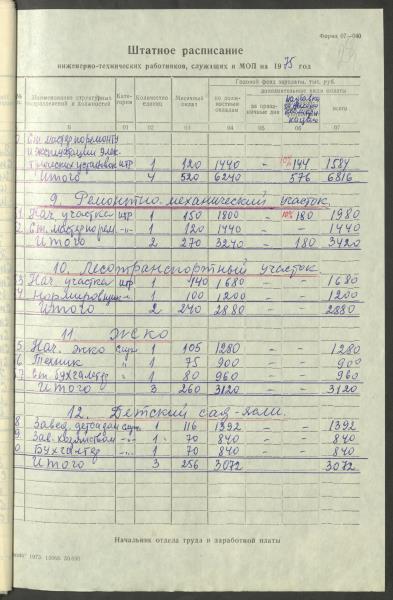 Форма 07—040
Штатное расписание
инженерно-технических работников, служащих и МОП на 1975 год
Годовой фонд зарплаты, тыс. руб.
Наименование структурных подразделений и должностей Категория Количество единиц Месячный оклад по должностным окладам дополнительные виды оплаты всего
Б 01 02 03 04 05 06 07
Ст. мастер по ремонту
и эксплуатации элек
тических установок итр 1 120 1440 - 10% 144 1584
Итого 4 520 6240 576 6816
9. Ремонтно-механический участок
1. Нач. участка итр 1 150 1800 - 10% 180 1980
2. Ст. мастер по рем. -"- 1 120 1440 - - 1440
Итого 2 270 3240 - 180 3420
10. Лесотранспортный участок
3 Нач. участка итр 1 140 1680 - - 1680
4 Нормировщик -"- 1 100 1200 - - 1200
Итого 2 240 2880 - - 2880
11. ЖСКО
5 Нач. ЖСКО Служ 1 105 1280 - - 1280
6 Техник " 1 75 900 - - 900
7. Ст. бухгалтер " 1 80 960 - - 960
Итого 3 260 3120 - - 3120
12. Детский сад-ясли.
8 Завед. детсадом Служ. 1 116 1392 - - 1392
9. Зав. хозяйством -"- 1 70 840 - - 840
0 Бухгалтер -"- 1 70 840 - - 840
Итого 3 256 3072 3072
Начальник отдела труда и заработной платы